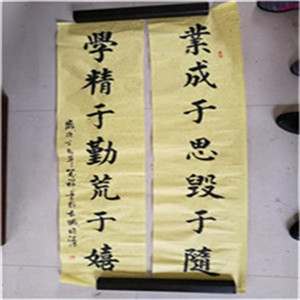 業成于思毀于隨
學精于勤荒于嬉